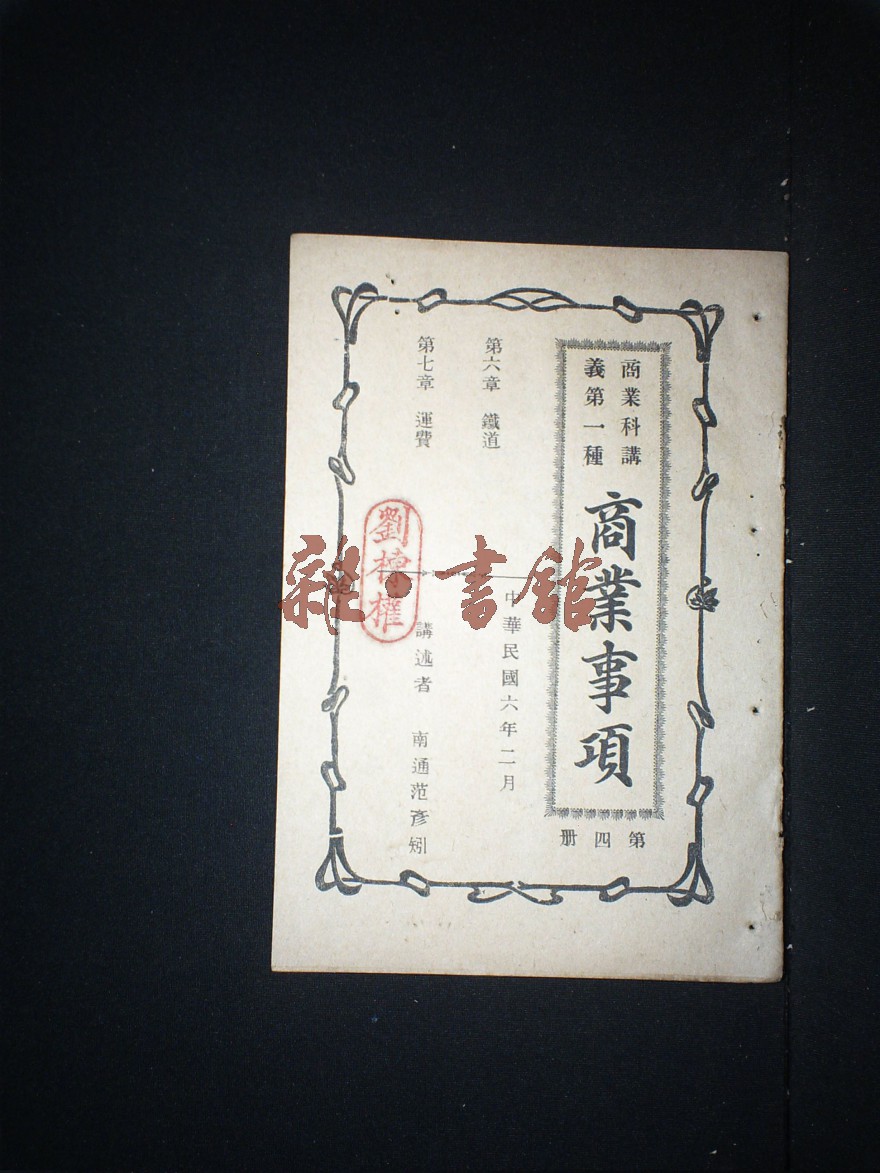 商業科講
義第一種
商業事項
第四册
第六章 鐵道
第七章 運費
中華民國六年二月
講述者 南通范彥矧
雜·書館